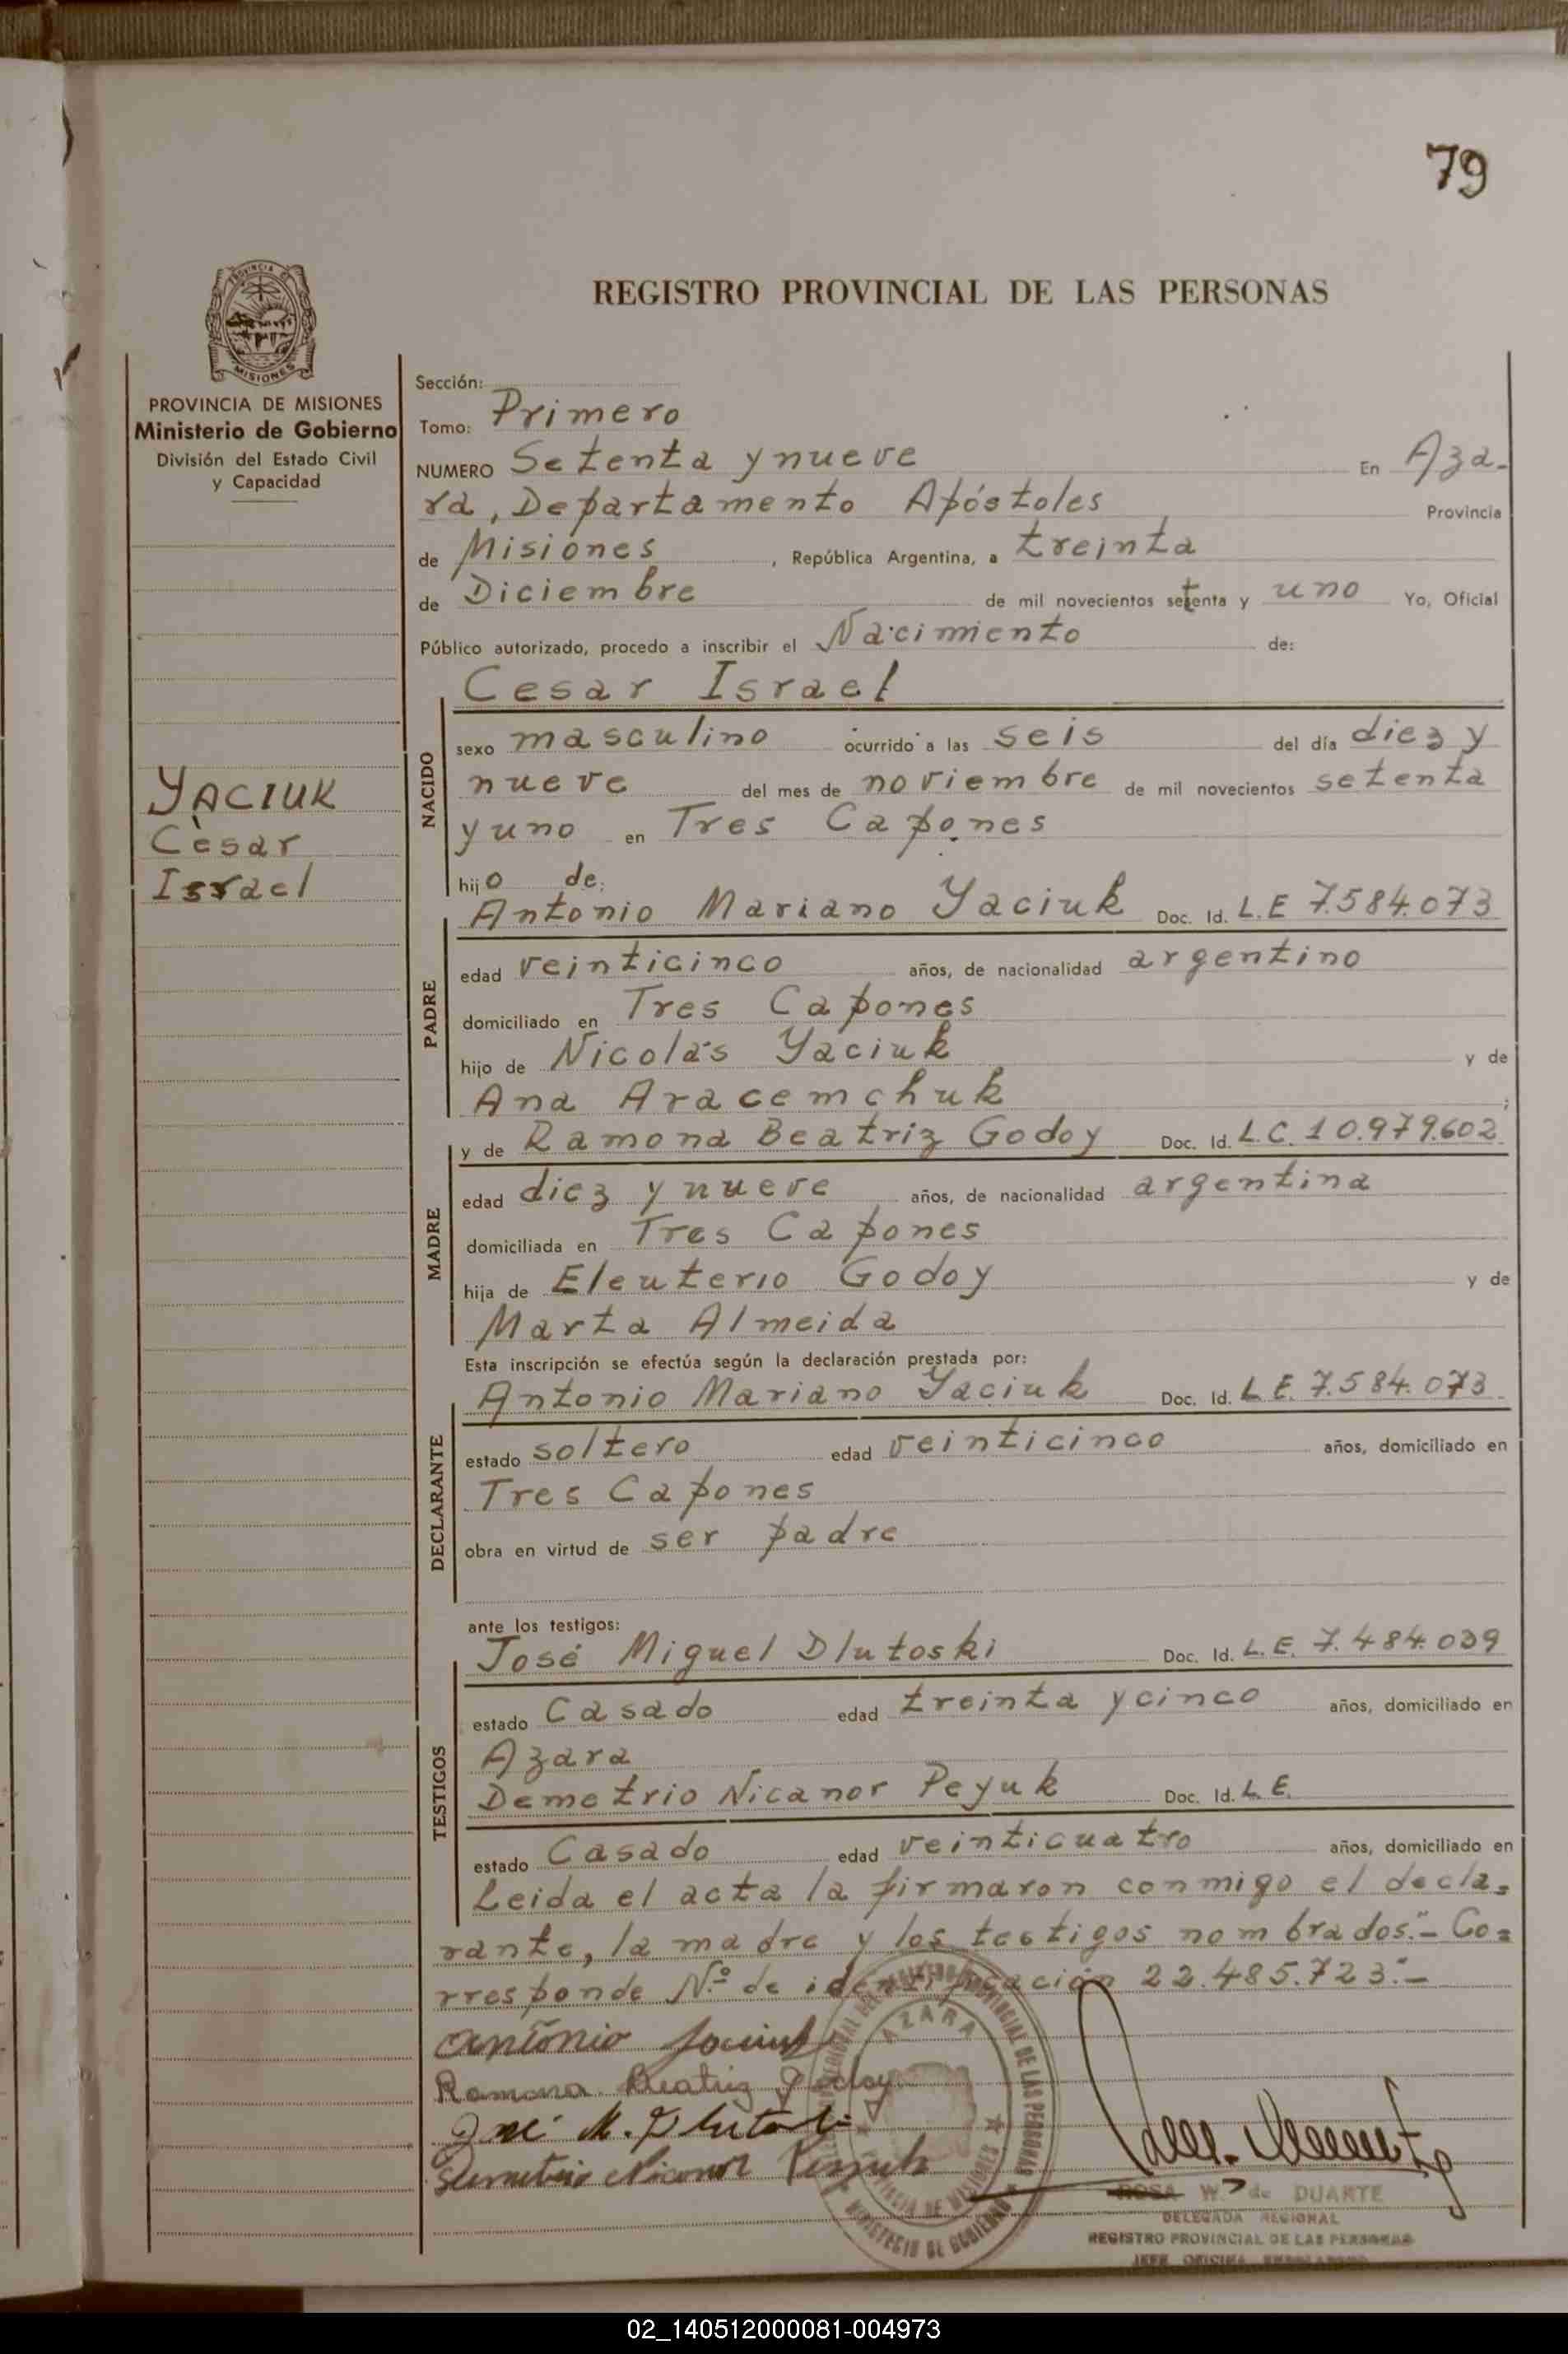 79
PROVINCIA DE
MISIONES
REGISTRO PROVINCIAL DE LAS PERSONAS
PROVINCIA DE MISIONES
Ministerio de Gobierno
División del Estado Civil
y Capacidad
YACIUK
Cèsar
Israel
Sección:
Tomo: Primero
NUMERO Setenta y nueve En Aza-
ra, Departamento Apóstoles Provincia
de Misiones , República Argentina, a treinta
de Diciembre de mil novecientos setenta y uno Yo, Oficial
Público autorizado, procedo a inscribir el Nacimiento de:
Cesar Israel
NACIDO
sexo masculino ocurrido a las seis del día diez y
nueve del mes de noviembre de mil novecientos setenta
y uno en Tres Capones
hijo de:
Antonio Mariano Yaciuk Doc. Id. L.E 7.584.073
PADRE
edad veinticinco años, de nacionalidad argentino
domiciliado en Tres Capones
hijo de Nicolás Yaciuk y de
Ana Aracemchuk ;
y de Ramona Beatriz Godoy Doc. Id. L.C. 10.979.602
MADRE
edad diez y nueve años, de nacionalidad argentina
domiciliada en Tres Capones
hija de Eleuterio Godoy y de
Marta Almeida
Esta inscripción se efectúa según la declaración prestada por:
Antonio Mariano Yaciuk Doc. Id. L.E. 7.584.073
DECLARANTE
estado soltero edad veinticinco años, domiciliado en
Tres Capones
obra en virtud de ser padre
ante los testigos:
José Miguel Dlutoski Doc. Id. L.E. 7.484.039
TESTIGOS
estado Casado edad treinta y cinco años, domiciliado en
Azara
Demetrio Nicanor Peyuk Doc. Id. L.E.
estado Casado edad veinticuatro años, domiciliado en
Leida el acta la firmaron conmigo el decla=
rante, la madre y los testigos nombrados."- Co=
rresponde N.º de identificación 22.485.723:-
Antonio
Ramona Beatriz Godoy
José M. Dlutoski
Demetrio Nicanor
AZARA
PROVINCIAL DE LAS PERSONAS
PROVINCIA DE MISIONES
MINISTERIO DE GOBIERNO
ROSA W. de DUARTE
DELEGADA REGIONAL
REGISTRO PROVINCIAL DE LAS PERSONAS
JEFE OFICINA
02_140512000081-004973